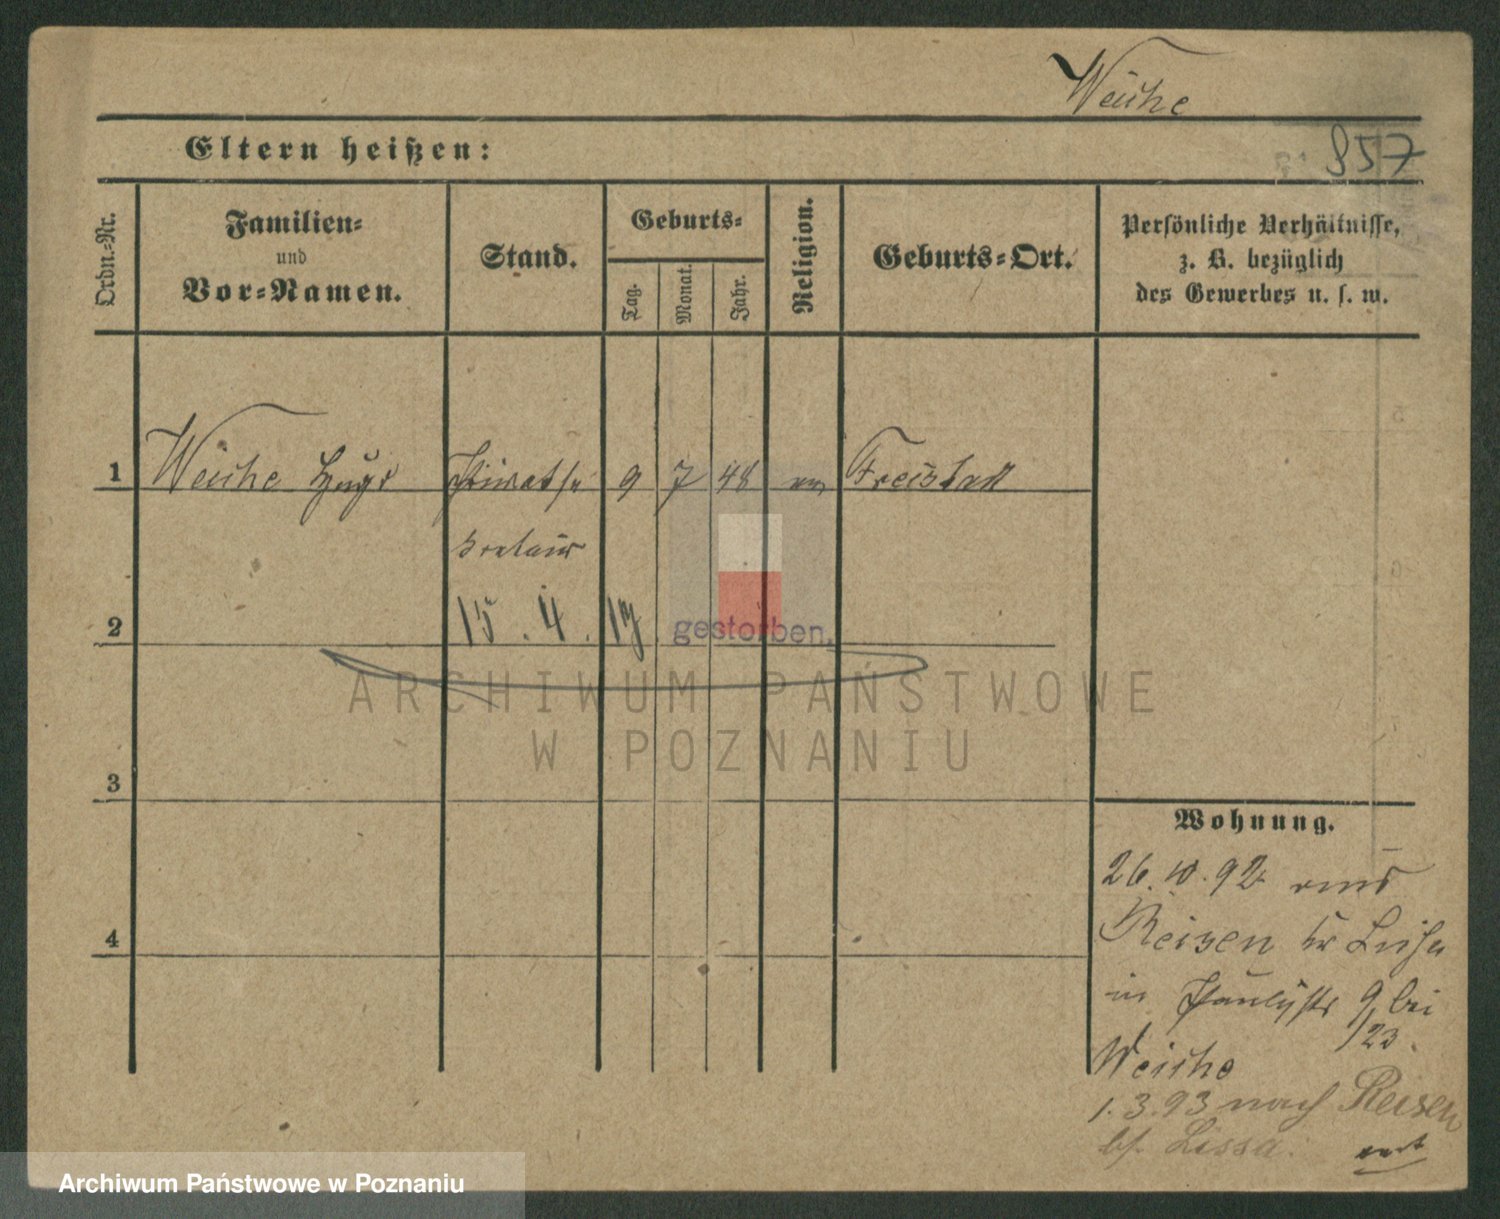 Weiche
Eltern heißen:
857
Ordn.-Nr.
Familien-
und
Vor-Namen.
Stand.
Geburts-
Tag.
Monat.
Jahr.
Religion.
Geburts-Ort.
Persönliche Verhältnisse,
z. B. bezüglich
des Gewerbes u. s. w.
1 Weiche Hugo Privatse 9 7 48 ev Freistadt
kretair
2 15. 4. 17. gestorben.
ARCHIWUM PAŃSTWOWE
W POZNANIU
3
Wohnung.
26.10.92 aus
4 Reisen Kr Lissa
in Paulystr 9 bei
/23.
Weiche
1.3.93 nach Reisen
b/. Lissa.
Archiwum Państwowe w Poznaniu